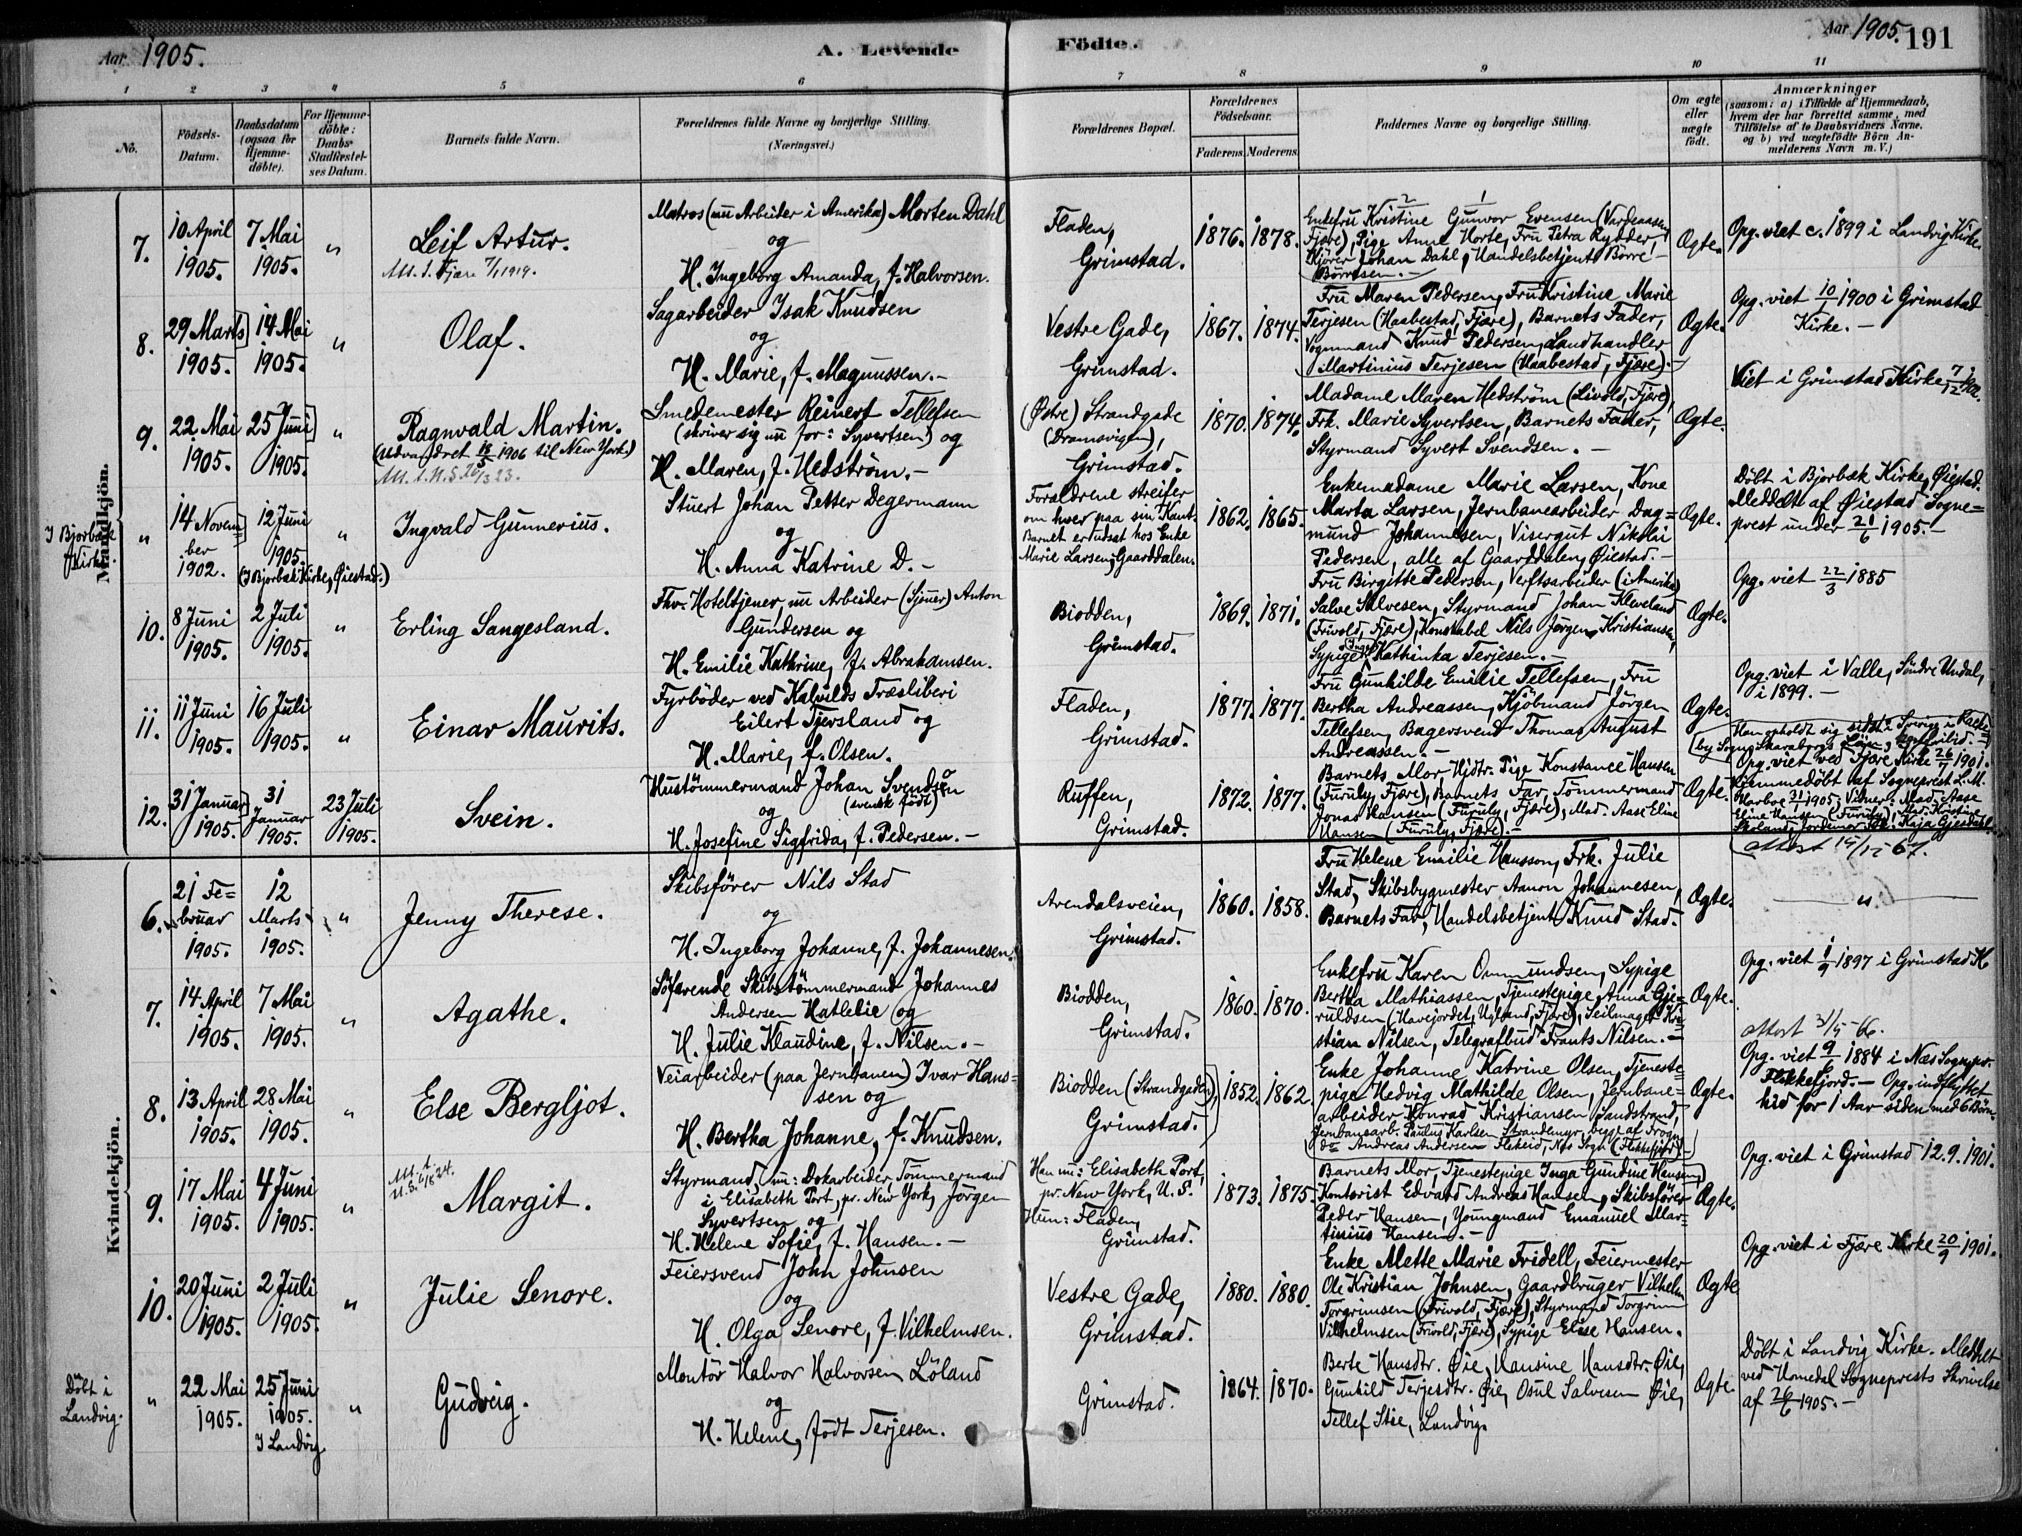 Aar. 1905. A. Levende Födte. Aar 1905. 191
1 2 3 4 5 6 7 8 9 10 11
No.
Födsels-Datum.
Daabsdatum (ogsaa for Hjemme-döbte).
For Hjemme-döbte: Daabs-Stadfæstel-ses Datum.
Barnets fulde Navn.
Forældrenes fulde Navne og borgerlige Stilling.
(Næringsvei.)
Forældrenes Bopæl.
Forældrenes Födselsaar.
Faderens. Moderens.
Faddernes Navne og borgerlige Stilling.
Om ægte eller uægte födt.
Anmærkninger
(saasom: a) i Tilfælde af Hjemmedaab,
hvem der har forrettet samme, med
Tilföielse af to Daabsvidners Navne,
og b) ved uægtefödte Börn An-
melderens Navn m. V.)
Mandkjön.
7.
10 April 1905.
7 Mai 1905.
"
Leif Artur.
Matros (nu Arbeider i Amerika) Morten Dahl
og
H. Ingeborg Amanda, f. Halvorsen.
Fladen,
Grimstad.
1876. 1878.
Enkefru Kristine Gunvor Evensen (Vardeaasen
Fjære), Pige Anne Horte, Fru Petra Rydder,
Kjører Johan Dahl, Handelsbetjent Börre
Börresen.
Ægte.
Opg. viet c. 1899 i Landvig Kirke.
8.
29 Marts 1905.
14 Mai 1905.
"
Olaf.
Sagarbeider Isak Knudsen
og
H. Marie, f. Magnussen.
Vestre Gade,
Grimstad.
1867. 1874.
Fru Maren Pedersen, Fru Kristine Marie
Terjesen (Haabestad, Fjære), Barnets Fader,
Vognmand Knud Pedersen, Landhandler
Martinius Terjesen (Haabestad, Fjære).
Ægte.
Opg. viet 10/1 1900 i Grimstad
Kirke.
9.
22 Mai 1905.
25 Juni 1905.
"
Ragnvald Martin.
Smedemester Reinert Tellefsen
(skriver sig nu for: Syvertsen) og
H. Maren, f. Hedström.
(Østre) Strandgade
(Dramsvigen),
Grimstad.
1870. 1874.
Madame Maren Hedström (Livold, Fjære),
Frk. Marie Syvertsen, Barnets Fader,
Styrmand Syvert Svendsen.
Ægte.
Viet i Grimstad Kirke
I Bjorbæk Kirke
"
14 November 1902.
12 Juni 1905.
(I Bjorbæk Kirke, Øiestad.)
"
Ingvald Gunnerius.
Stuert Johan Petter Degermann
og
H. Anna Katrine D.
Forældrene streifer
om hver paa sin Kant.
Barnet er udsat hos Enke
Marie Larsen, Gaarddalen.
1862. 1865.
Enkemadame Marie Larsen, Kone
Marta Larsen, Jernbanearbeider Dag=
mund Johannesen, Visergut Nikolai
Pedersen, alle af Gaarddalen, Øiestad.
Ægte.
Döbt i Bjorbæk Kirke, Øiestad.
Meddelt af Øiestad Sogne=
prest under 21/6 1905.
10.
8 Juni 1905.
2 Juli 1905.
"
Erling Langesland.
Fhv. Hoteltjener, nu Arbeider (Sjouer) Anton
Gundersen og
H. Emilie Kathrine, f. Abrahamsen.
Biodden,
Grimstad.
1869. 1871.
Fru Birgitte Pedersen, Verftsarbeider (i Amerika)
Salve Salvesen, Styrmand Johan Kleveland
(Frivold, Fjære), Konstabel Nils Jørgen Kristiansen,
Sypige Kathinka Terjesen.
Ægte.
Opg. viet 22/3 1885
11.
11 Juni 1905.
16 Juli 1905.
"
Einar Maurits.
Fyrböder ved Kalvilds Træsliberi
Eilert Tjersland og
H. Marie, f. Olsen.
Fladen,
Grimstad.
1877. 1877.
Fru Gunhilde Emilie Tellefsen, Fru
Bertha Andreassen, Kjöbmand Jörgen
Tellefsen, Bagersvend Thomas August
Andreassen.
Ægte.
Opg. viet i Valle, Söndre Undal,
i 1899.
12.
31 Januar 1905.
31 Januar 1905.
23 Juli 1905.
Svein.
Hustömmermand Johan Svendsen
(svensk födt)
og
H. Josefine Sigfrida, f. Pedersen.
Ruffen,
Grimstad.
1872. 1877.
Barnets Mor, Pige Konstance Hansen
(Furuly, Fjære), Barnets Far, Tömmermand
Jonas Hansen (Furuly, Fjære), Mad. Aase Eline
Hansen (Furuly, Fjære).
Ægte.
Opg. viet ved Fjære Kirke 26/7 1901.
Hjemmedöbt af Sogneprest L. M.
Harboe 31/1 1905; Vidner: Mad. Aase
Eline Hansen (Furuly), Mad. Kristine
Kaja Gjesdahl.
Kvindekjön.
6.
21 Februar 1905.
12 Marts 1905.
"
Jenny Therese.
Skibsförer Nils Stad
og
H. Ingeborg Johanne, f. Johannesen.
Arendalsveien,
Grimstad.
1860. 1858.
Fru Helene Emilie Hansson, Frk. Julie
Stad, Skibsbygmester Aanon Johannesen,
Barnets Far, Handelsbetjent Knud Stad.
Ægte.
"
7.
14 April 1905.
7 Mai 1905.
"
Agathe.
Söfarende Skibstömmermand Johannes
Andersen Hatlelie og
H. Julie Klaudine, f. Nilsen.
Biodden,
Grimstad.
1860. 1870.
Enkefru Karen Ommundsen, Sypige
Bertha Mathiassen, Tjenestepige Anna Gje=
ruldsen (Havejordet, Ugland, Fjære), Seilmager Kri=
stian Nilsen, Telegrafbud Frants Nilsen.
Ægte.
Opg. viet 1/9 1897 i Grimstad K.
8.
13 April 1905.
28 Mai 1905.
"
Else Bergljot.
Veiarbeider (paa Jernbanen) Ivar Han=
sen og
H. Bertha Johanne, f. Knudsen.
Biodden (Strandgaden),
Grimstad.
1852. 1862.
Enke Johanne Katrine Olsen, Tjeneste
pige Hedvig Mathilde Olsen, Jernbane=
arbeider Konrad Kristiansen Sandstrand,
Jernbanearb. Paulus Karlsen Strandemyr,
do Andreas Andersen
Ægte.
Opg. viet 9/1 1884 i Næs Sogn pr.
Flekkefjord. Opg. indflyttet
hid for 1 Aar siden med 6 Börn.
9.
17 Mai 1905.
4 Juni 1905.
"
Margit.
Styrmand, nu: Dokarbeider, Tömmermand
i Elisabeth Port, pr. New York, Jörgen
Syvertsen og
H. Helene Sofie, f. Hansen.
Han nu: Elisabeth Port,
pr. New York, U. S.
Hun: Fladen,
Grimstad.
1873. 1875.
Barnets Mor, Tjenestepige Inga Gundine Hansen,
Kontorist Edvard Andreas Hansen, Skibsförer
Peder Hansen, Youngmand Emanuel Mar=
tinius Hansen.
Ægte.
Opg. viet i Grimstad 12.9.1901.
10.
20 Juni 1905.
2 Juli 1905.
"
Julie Lenore.
Feiersvend John Johnsen
og
H. Olga Lenore, f. Vilhelmsen.
Vestre Gade,
Grimstad.
1880. 1880.
Enke Mette Marie Fridell, Feiermester
Ole Kristian Johnsen, Gaardbruger Vilhelm
Torgrimsen (Frivold, Fjære), Styrmand Torgrim
Vilhelmsen (Frivold, Fjære), Sypige Elise Hansen.
Ægte
Opg. viet i Fjære Kirke 20/9 1901.
Döbt i Landvig.
"
22 Mai 1905.
25 Juni 1905.
I Landvig
"
Gudveig.
Montör Halvor Halvorsen Löland
og
H. Helene, födt Terjesen.
Grimstad.
1864. 1870.
Berte Hansdtr. Øie, Hansine Hansdtr. Øie,
Gunhild Terjesdtr. Øie, Osul Salvesen Øie,
Tellef Stie, Landvig.
Ægte.
Döbt i Landvig Kirke. Meddelt
ved Homedal Sogneprests Skrivelse
af 26/6 1905.